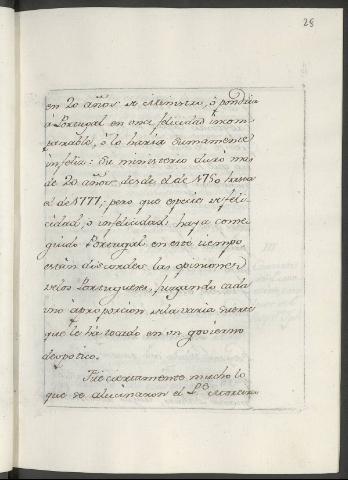 28
en 20 años de Ministro, ò pondria
à Portugal en una felicidad incom-
parable, ò lo haria sumamente
infeliz: Su ministerio durò mas
de 20 años, desde el de 1750 hasta
el de 1777; pero que especie de feli-
cidad, ò infelicidad haya conse-
guido Portugal en este tiempo
están discordes las opiniones
delos Portugueses, juzgando cada
uno à proporcion dela varia suerte
que le ha tocado en un govierno
despotico.
Fue ciertamente mucho lo
que se alucinaron el P.e Moreira